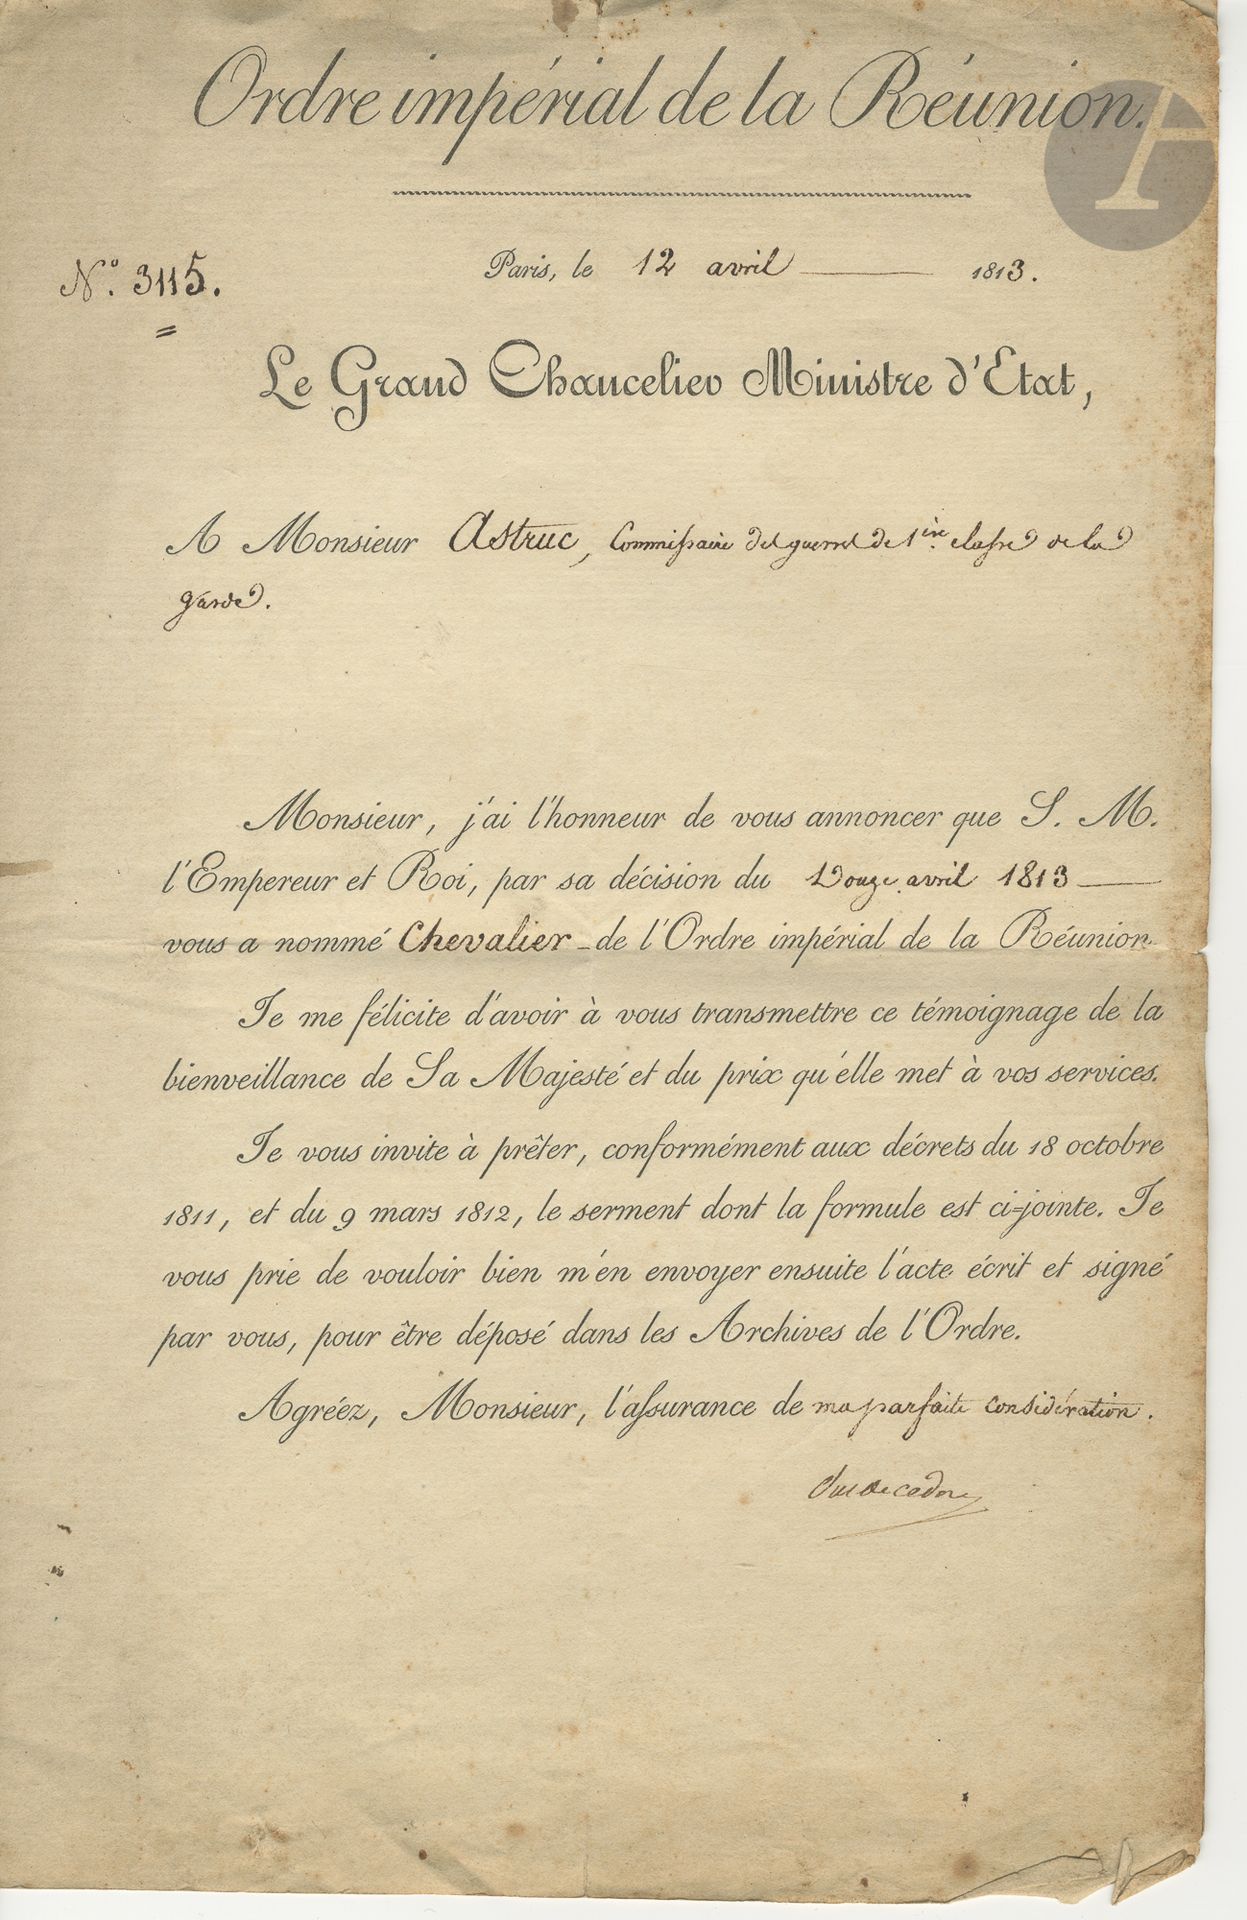 Ordre impérial de la Réunion.
N.° 3115.
Paris, le 12 avril 1813.
Le Grand Chancelier Ministre d'Etat,
A Monsieur Astruc, Commissaire des guerres de 1ère classe de la
garde.
Monsieur, j'ai l'honneur de vous annoncer que S. M.
l'Empereur et Roi, par sa décision du Douze avril 1813
vous a nommé Chevalier de l'Ordre impérial de la Réunion.
Je me félicite d'avoir à vous transmettre ce témoignage de la
bienveillance de Sa Majesté et du prix qu'elle met à vos services.
Je vous invite à prêter, conformément aux décrets du 18 octobre
1811, et du 9 mars 1812, le serment dont la formule est ci-jointe. Je
vous prie de vouloir bien m'en envoyer ensuite l'acte écrit et signé
par vous, pour être déposé dans les Archives de l'Ordre.
Agréez, Monsieur, l'assurance de ma parfaite considération.
Duc de cadore